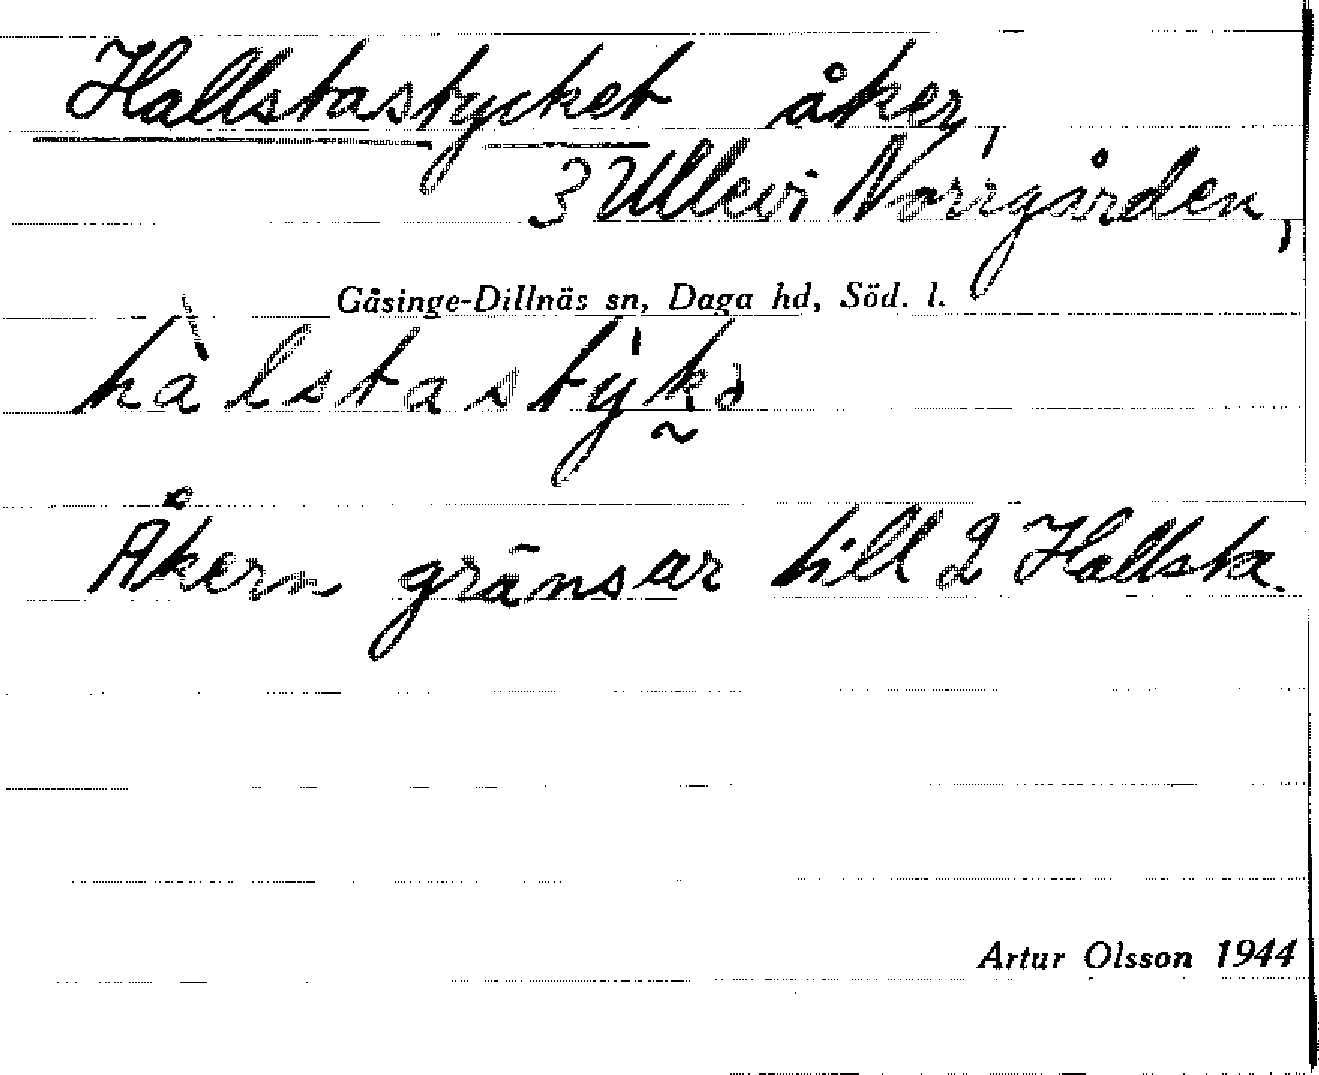 Hallstastycket åker,
3 Ullevi Norrgården,
Gåsinge-Dillnäs sn, Daga hd, Söd. l.
hàlstastýkə
Åkern gränsar till 2 Hallsta.
Artur Olsson 1944